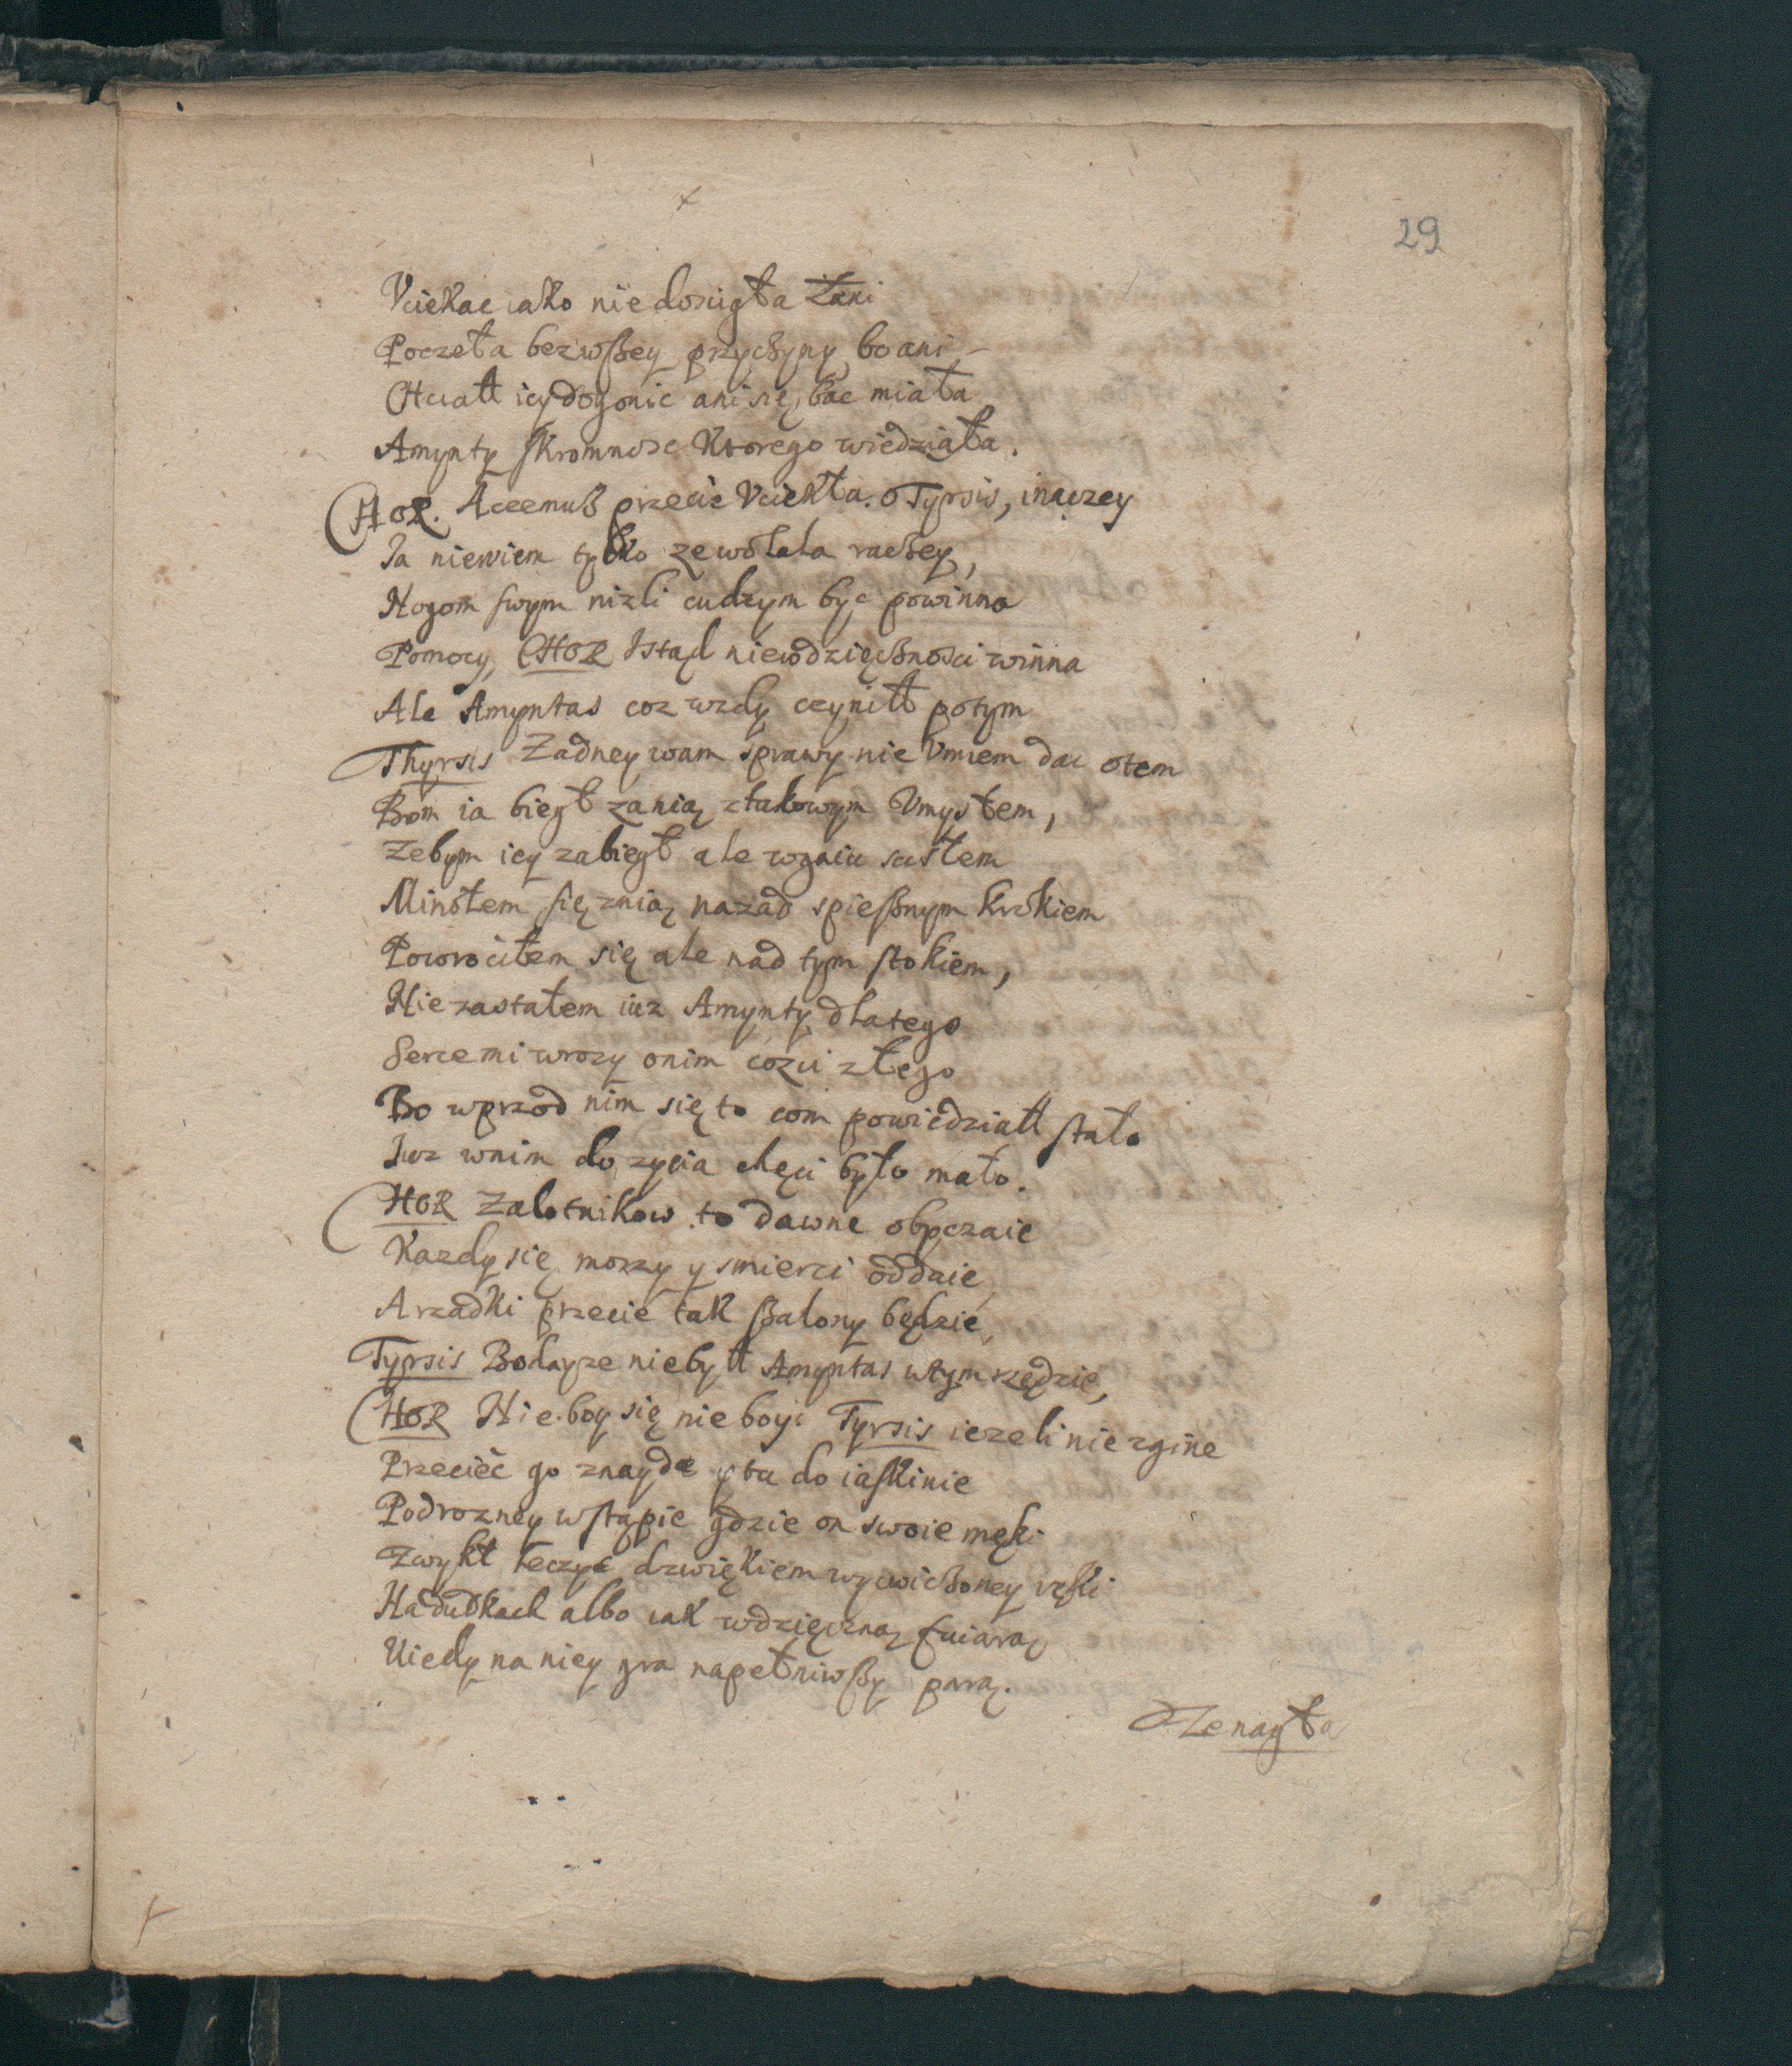 29
Vciekac iako niedoscigła Łani
Poczeła bezwszey przyczyny, bo ani
Chciałł iey dogonic ani się bac miała
Amynty skromnosc ktorego wiedziała.
CHOR. Aczemusz przecie Vciekła. O Tyrsis, inaczey
Ia niewiem tylko ze wolała raczey,
Nogom swym nizli cudzym byc powinna
Pomocy, CHOR Istąd niewdzięcznosci winna
Ale Amyntas coz wzdy czyniłł potym
Thyrsis Zadney wam sprawy nie Vmiem dac otem
Bom ia biegł zanią ztakowym Vmysłem,
Zebym iey zabiegł ale wgaiu scisłem
Minołem się znią, nazad spiesznym krokiem
Powrociłem się ale nad tym stokiem,
Niezastałem iuz Amynty, dlatego
Serce mi wrozy onim cozci złego
Bo wprzod nim się to com powiedziałł stało
Iuz wnim do zycia chęci było mało.
CHOR Zalotnikow to dawne obyczaie
Kazdy się morzy y smierci oddaie,
A rzadki przecie tak szalony będzie,
Tyrsis Bodayze niebyłł Amyntas wtym rzędzie,
CHOR Nie boy się nie boy: Tyrsis iezeli nie zgine
Przeciec go znayde y tu do iaskinie
Podrozney wstąpie gdzie on swoie męki
Zwykł leczyc dzwiękiem wycwiczoney ręki
Na dudkach albo iak wdzięczną fuiarą
Kiedy na niey gra napełniwszy parą.
Ze nagła